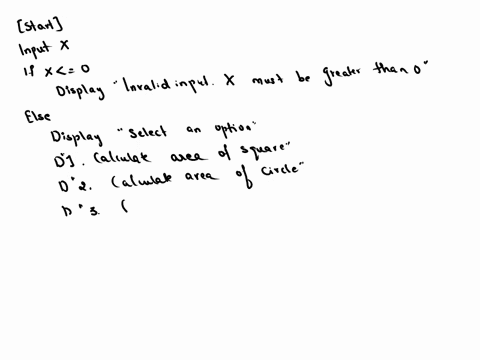 [Start]
Input X
If x<= 0
Display "Invalid input. X must be greater than 0"
Else
Display "Select an option"
D"1. Calculate area of square"
D"2. Calculate area of Circle"
D"3. (